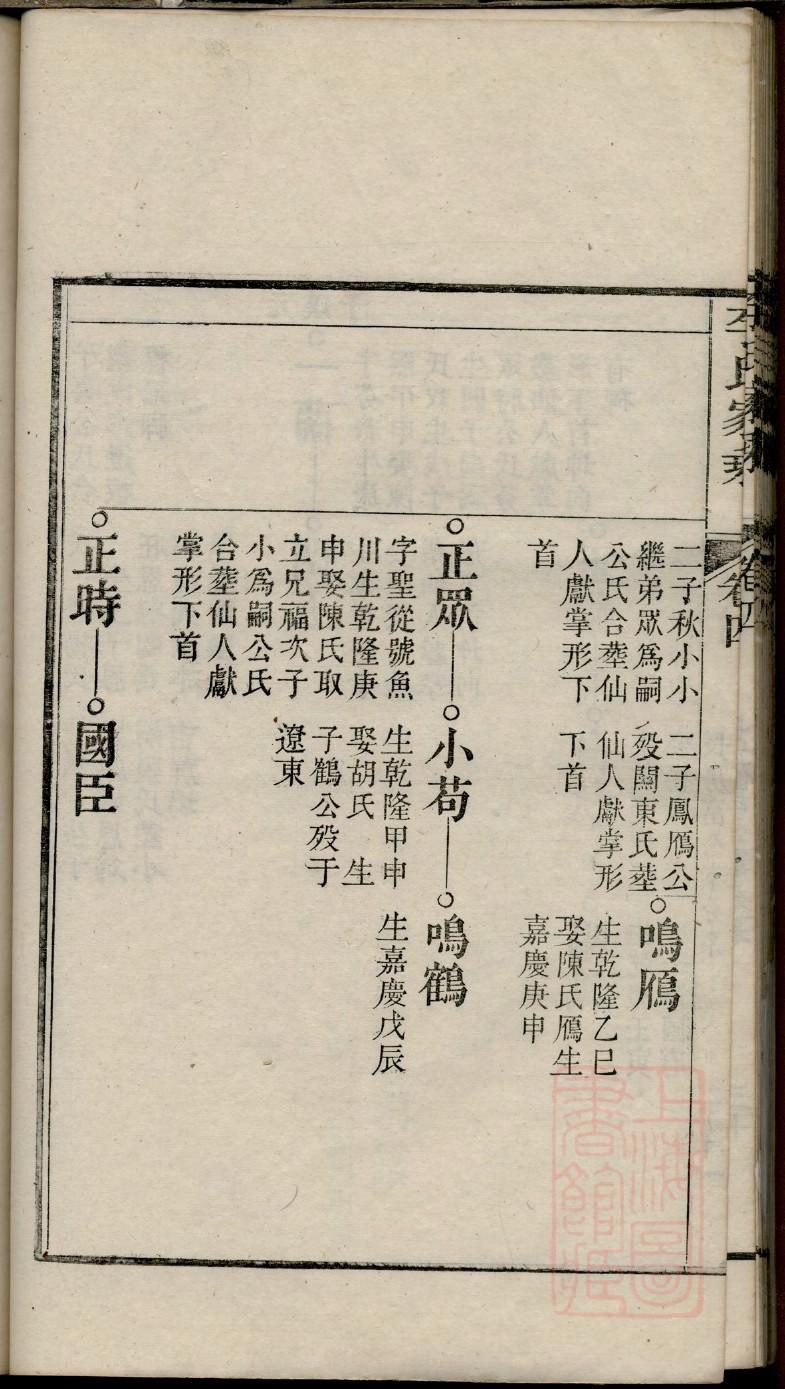 李氏家乘
卷四
二子秋小小
繼弟眾為嗣
公氏合塟仙
人獻掌形下
首
二子鳳鴈公
歿關東氏塟
仙人獻掌形
下首
鳴鴈
生乾隆乙巳
娶陳氏鴈生
嘉慶庚申
正眾
字聖從號魚
川生乾隆庚
申娶陳氏取
立兄福次子
小為嗣公氏
合塟仙人獻
掌形下首
小苟
生乾隆甲申
娶胡氏 生
子鶴公歿于
遼東
鳴鶴
生嘉慶戊辰
正時
國臣
上海圖
書館藏